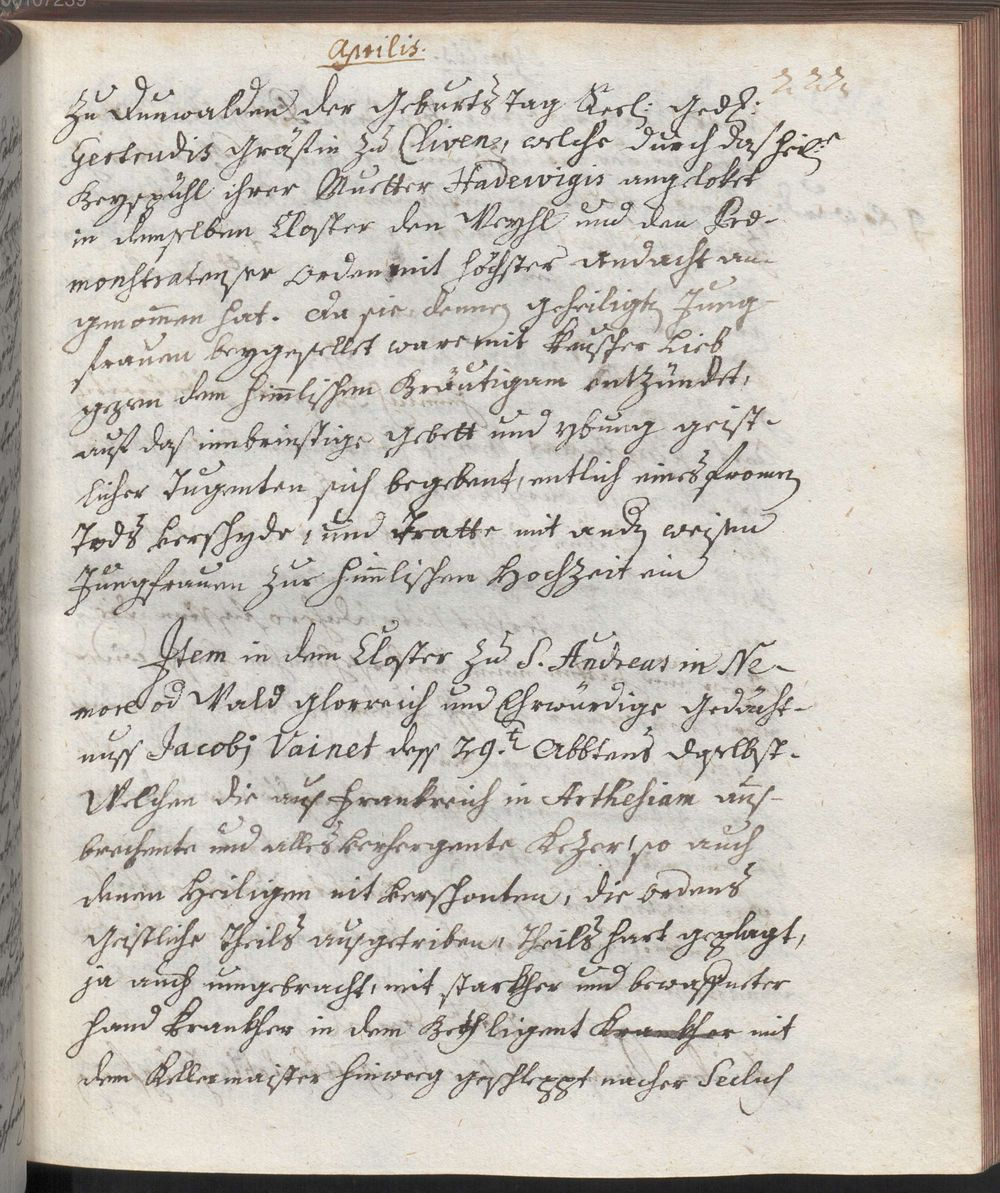 Aprilis.
222
Zu Dunwalden der Geburts Tag Seel: Ged:
Gertrudis Gräffin zu Cliven, welche durch das heil:
Beyspühl ihrer Muetter Hadewigis angeloket
in demselben Closter den Weyhl und den Præ-
monstratenser Orden mit höchster andacht an-
genommen hat. Da sie denen geheiligten Jung-
frauen beygesellet ware mit keuscher Lieb
gegen dem himlischen Bräutigam entzündet,
auf das innbrinstige Gebett und ybung geist-
licher Tugenten sich begebent, entlich eines fromen
Tods verschyde, und tratte mit andern weisen
Jungfrauen zur himlischen Hochzeit ein
Item in dem Closter zu S. Andreas in Ne-
more od Wald glorreich und Ehrwürdige Gedächt-
nuss Jacobj Vainet dess 29.t Abbtens daselbst.
Welchen die aus Frankreich in Arthesiam aus-
brechente und alles verhergente Kezer, so auch
denen Heiligen nit verschonten, die ordens
Geistliche Theils ausgetriben, Theils hart geplagt,
ja auch umgebracht, mit starkher und bewaffneter
hand krankher in dem Beth ligent Krankher mit
dem Kellermaister hinweeg geschleppt nacher